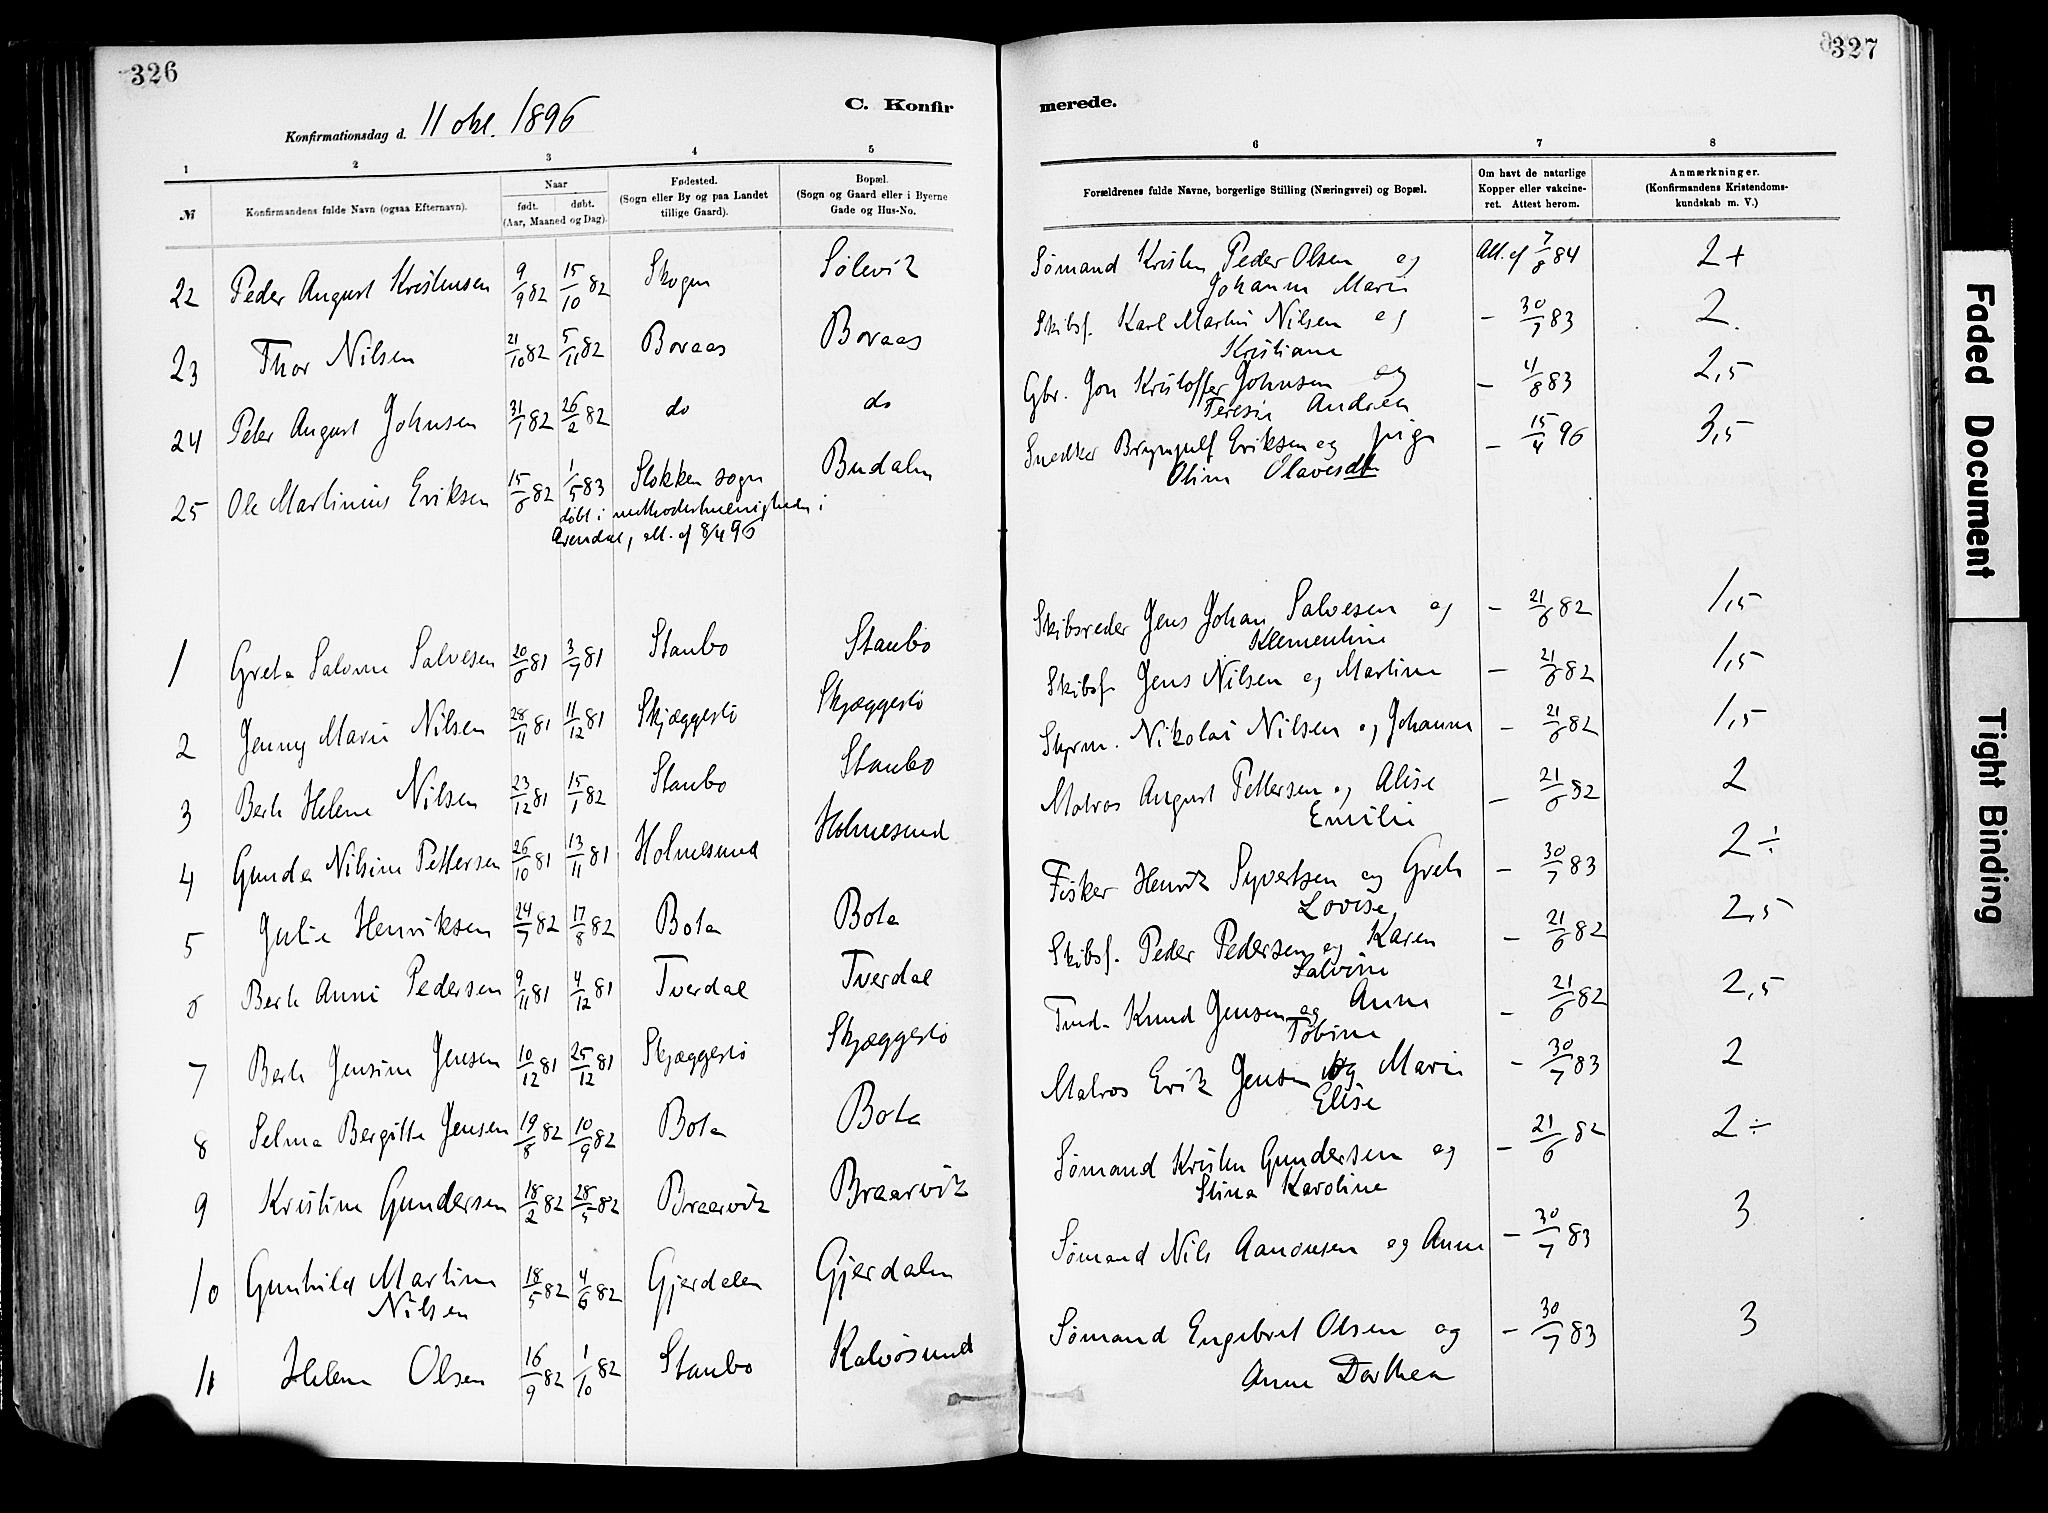 326
C. Konfir
Konfirmationsdag d. 11 okt. 1896
1 2 3 4 5
№ Konfirmandens fulde Navn (ogsaa Efternavn). Naar født. døbt. (Aar, Maaned og Dag). Fødested. (Sogn eller By og paa Landet tillige Gaard). Bopæl. (Sogn og Gaard eller i Byerne Gade og Hus-No.
22 Peder August Kristensen 9/9 82 15/10 82 Skogen Sølevik
23 Thor Nilsen 21/10 82 5/11 82 Boraas Boraas
24 Peter August Johnsen 31/1 82 26/2 82 do do
25 Ole Martinius Eriksen 15/6 82 1/5 83 Stokken sogn Budalen
døbt i methodistmenigheden i
Arendal, att. af 8/4 96
1 Grete Salvine Salvesen 20/6 81 3/7 81 Staubo Staubo
2 Jenny Marie Nilsen 28/11 81 11/12 81 Skjæggestø Skjæggestø
3 Berte Helene Nilsen 23/12 81 15/1 82 Staubo Staubo
4 Gunda Nilsine Pettersen 26/10 81 13/11 81 Holmesund Holmesund
5 Julie Henriksen 24/7 82 17/8 82 Bota Bota
6 Berte Anne Pedersen 9/11 81 4/12 81 Tverdal Tverdal
7 Berte Jensine Jensen 10/12 81 25/12 81 Skjæggestø Skjæggestø
8 Selma Bergitte Jensen 19/8 82 10/9 82 Bota Bota
9 Kristine Gundersen 18/2 82 28/5 82 Braarvik Braarvik
10 Gunhild Martine 18/5 82 4/6 82 Gjerdalen Gjerdalen
Nilsen
11 Helene Olsen 16/9 82 1/10 82 Staubo Kalvøsund
327
merede.
6 7 8
Forældrenes fulde Navne, borgerlige Stilling (Næringsvei) og Bopæl. Om havt de naturlige Kopper eller vakcineret. Attest herom. Anmærkninger. (Konfirmandens Kristendomskundskab m. V.)
Sømand Kristen Peder Olsen og Att. af 7/8 84 2+
Johanne Marie
Skibsf. Karl Martin Nilsen og – 30/7 83 2.
Kristiane
Gbr. Jon Kristoffer Johnsen og – 4/8 83 2,5
Teresie Andrea
Snedker Brynjulf Eriksen og pige – 15/4 96 3,5
Oline Olavesdt.
Skibsreder Jens Johan Salvesen og – 21/6 82 1,5
Klementine
Skibsf. Jens Nilsen og Martine – 21/6 82 1,5
Styrm. Nikolai Nilsen og Johanne – 21/6 82 1,5
Matros August Pettersen og Alise – 21/6 82 2
Emilie
Fisker Henrik Syvertsen og Grete – 30/7 83 2÷
Lovise
Skibsf. Peder Pedersen og Karen – 21/6 82 2,5
Salvine
Knud Jensen og Anne – 21/6 82 2,5
Tobine
Matros Erik Jensen og Marie – 30/7 83 2
Elise
Sømand Kristen Gundersen og – 21/6 82 2÷
Stina Karoline
Sømand Nils Aanonsen og Anne – 30/7 83 3
Sømand Engebret Olsen og – 30/7 83 3
Anne Dorthea
Faded Document
Tight Binding